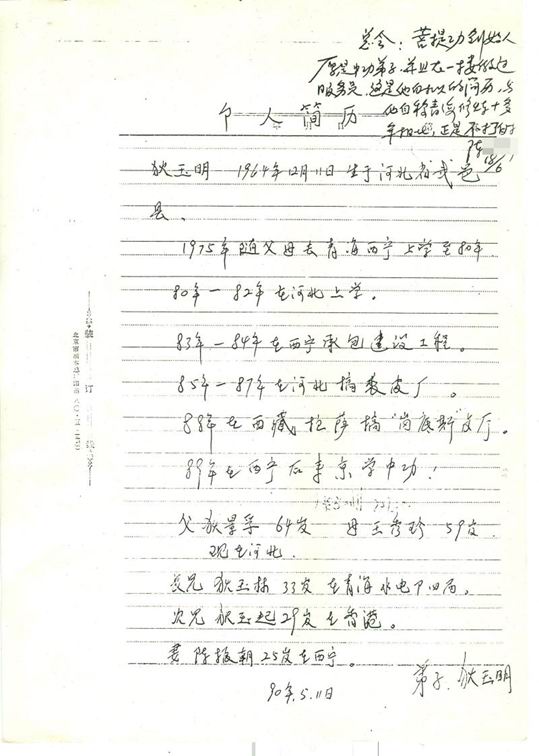 总会：菩提功创始人
原是中功弟子，并且在一楼做过
服务员，这是他自打的简历，与
他自称青海修学十多
年相悖，正是不打自
陈
个人简历
狄玉明 1964年12月11日生于河北省武邑
县。
1975年随父母去青海西宁上学至80年
80年—82年在河北上学。
83年—84年在西宁承包建设工程。
85年—87年在河北搞裘皮厂。
88年在西藏拉萨搞"岗底斯"文厅。
89年在西宁后来京学中功！
父 狄景孚 64岁 母 王秀珍 59岁
现在河北.
长兄 狄玉栋 33岁 在青海水电四局。
次兄 狄玉起 29岁 在香港。
妻 陈振朝 25岁 在西宁。
弟子. 狄玉明
90年.5.11日